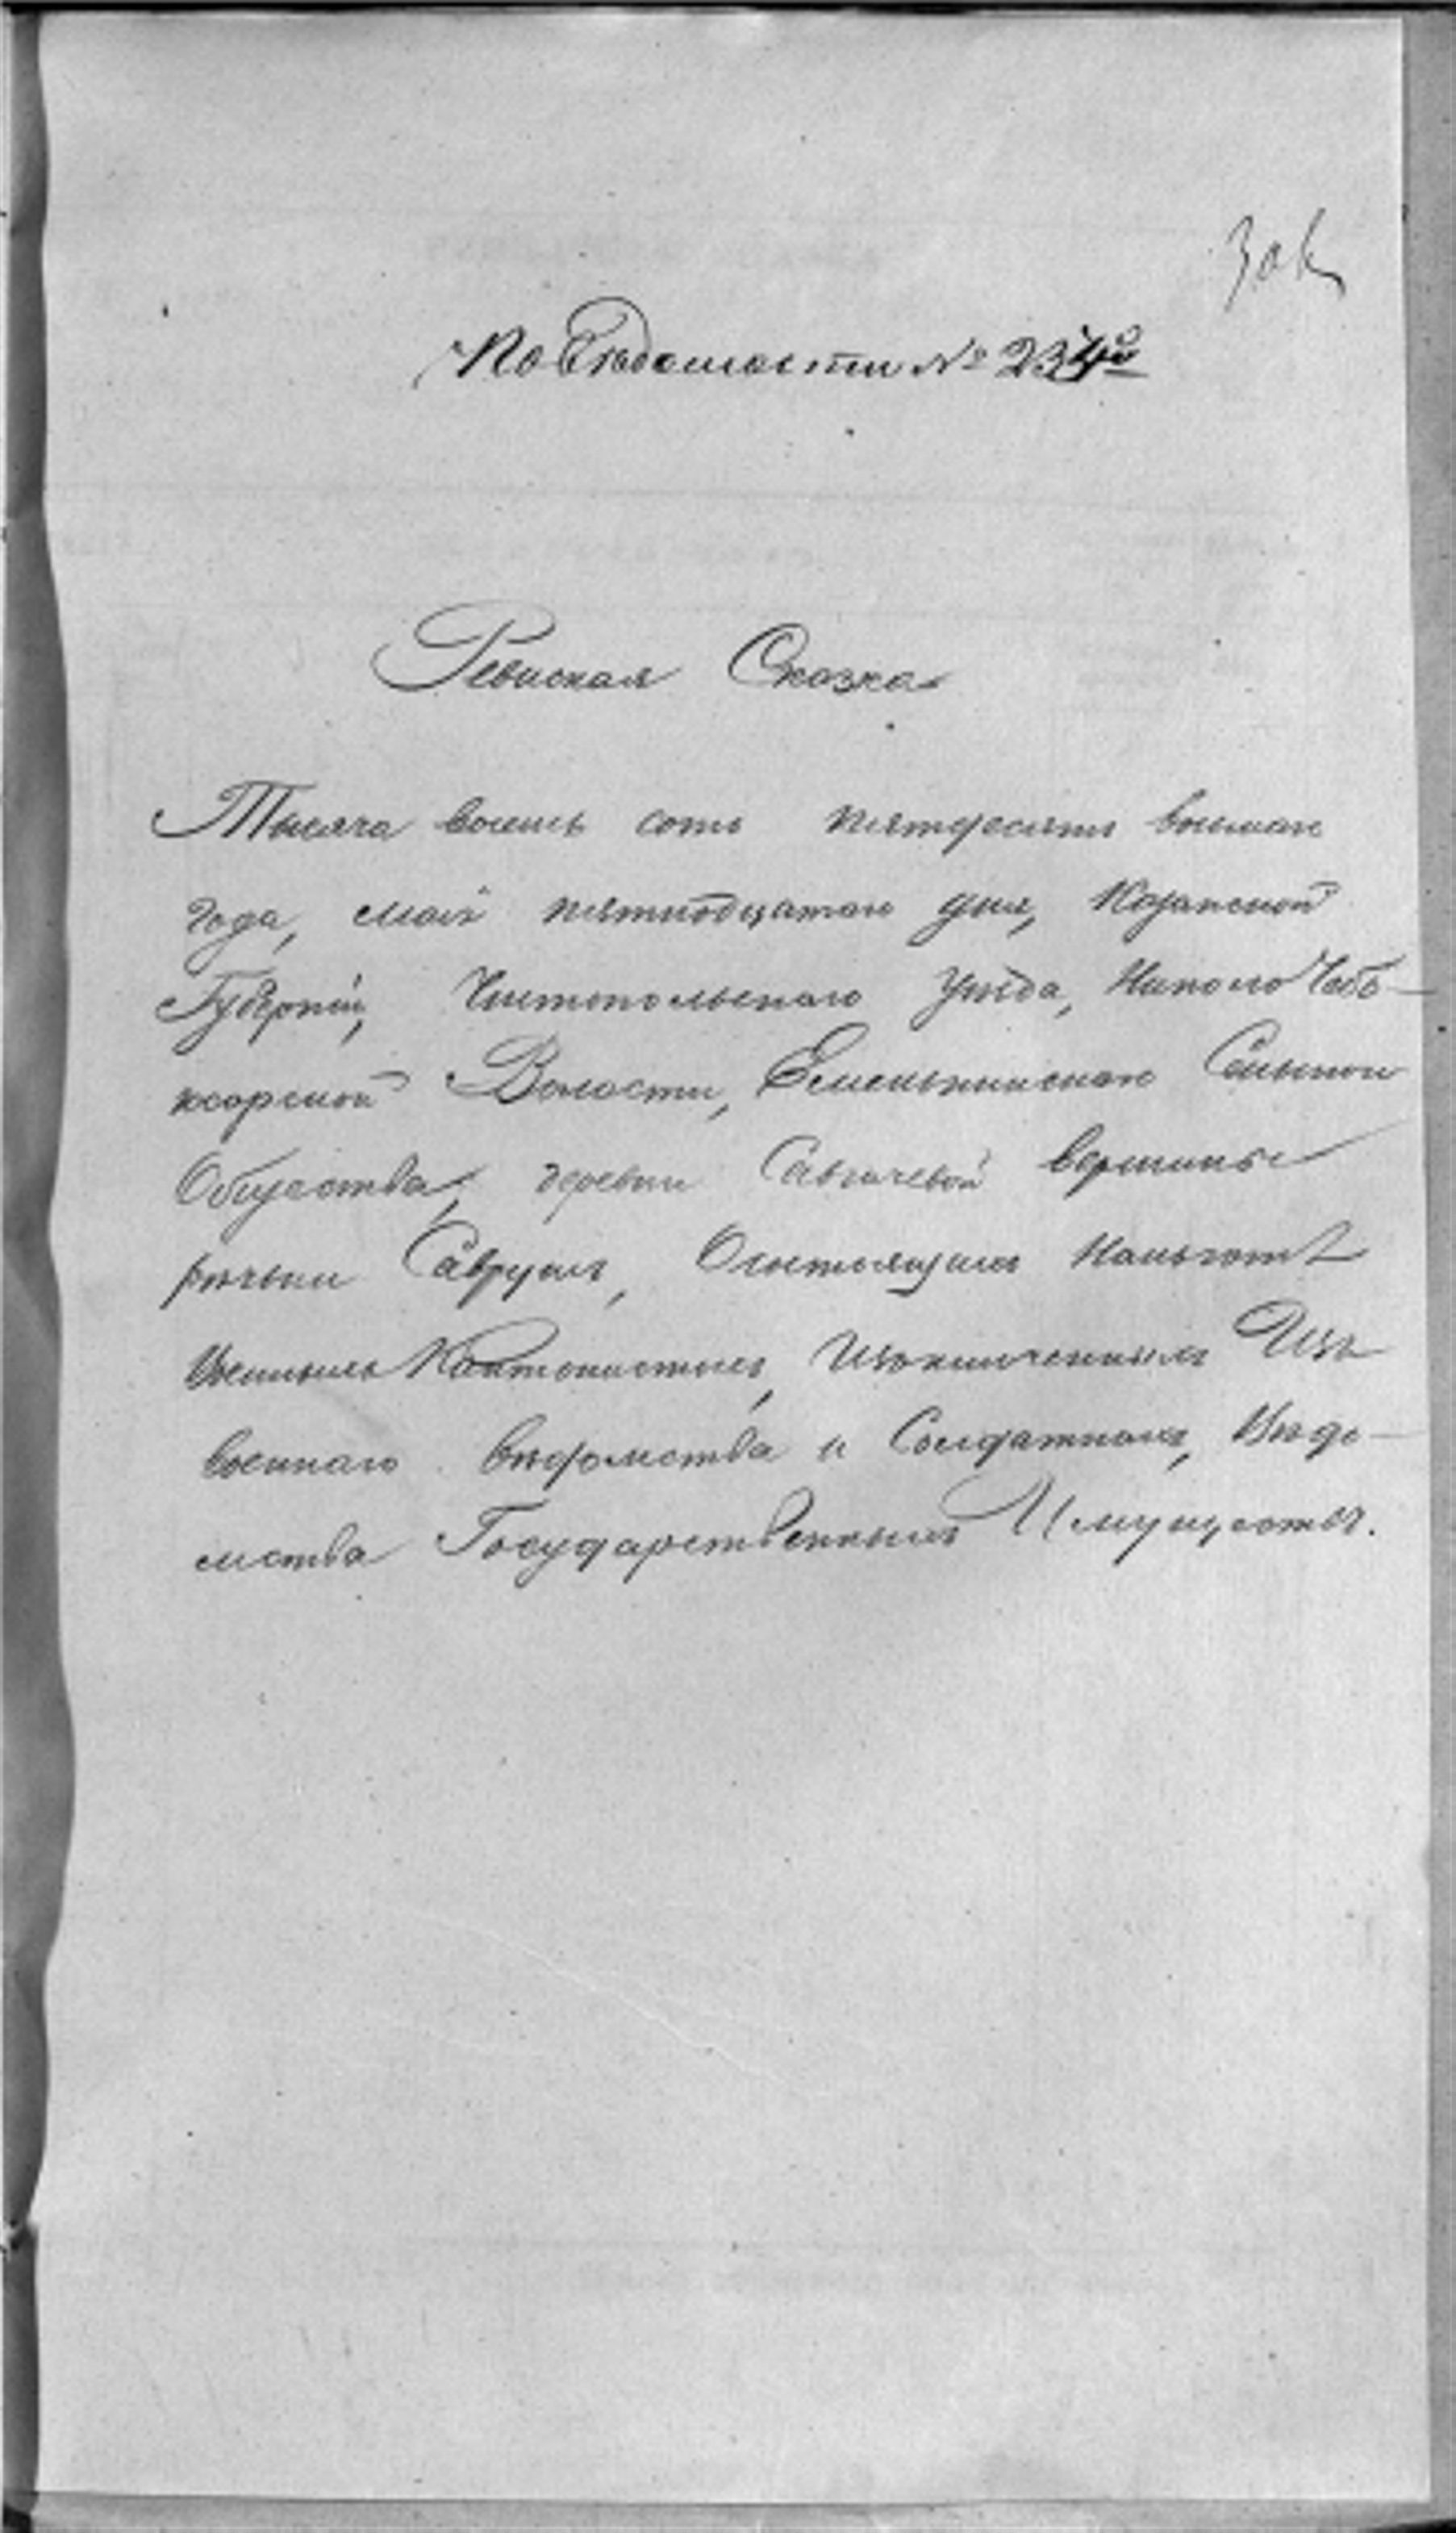 По Ведомости № 234й
Ревиская Сказка
Тысяча восемь сотъ пятьдесятъ восмаго
года, Мая пятнадцатаго дня, Казанской
Губерніи, Чистопольскаго Уезда, Николо Чебо-
ксарской Волости, Емельянинскаго Сельскаго
Общества, деревни Савгачевой вершины
речьки Саврушъ, О состоящихъ Нальготе
Военныхъ Кантонистахъ, Изключенныхъ Изъ
военнаго ведомства и Солдаткахъ, Ведо-
мства Государственныхъ Имуществъ.